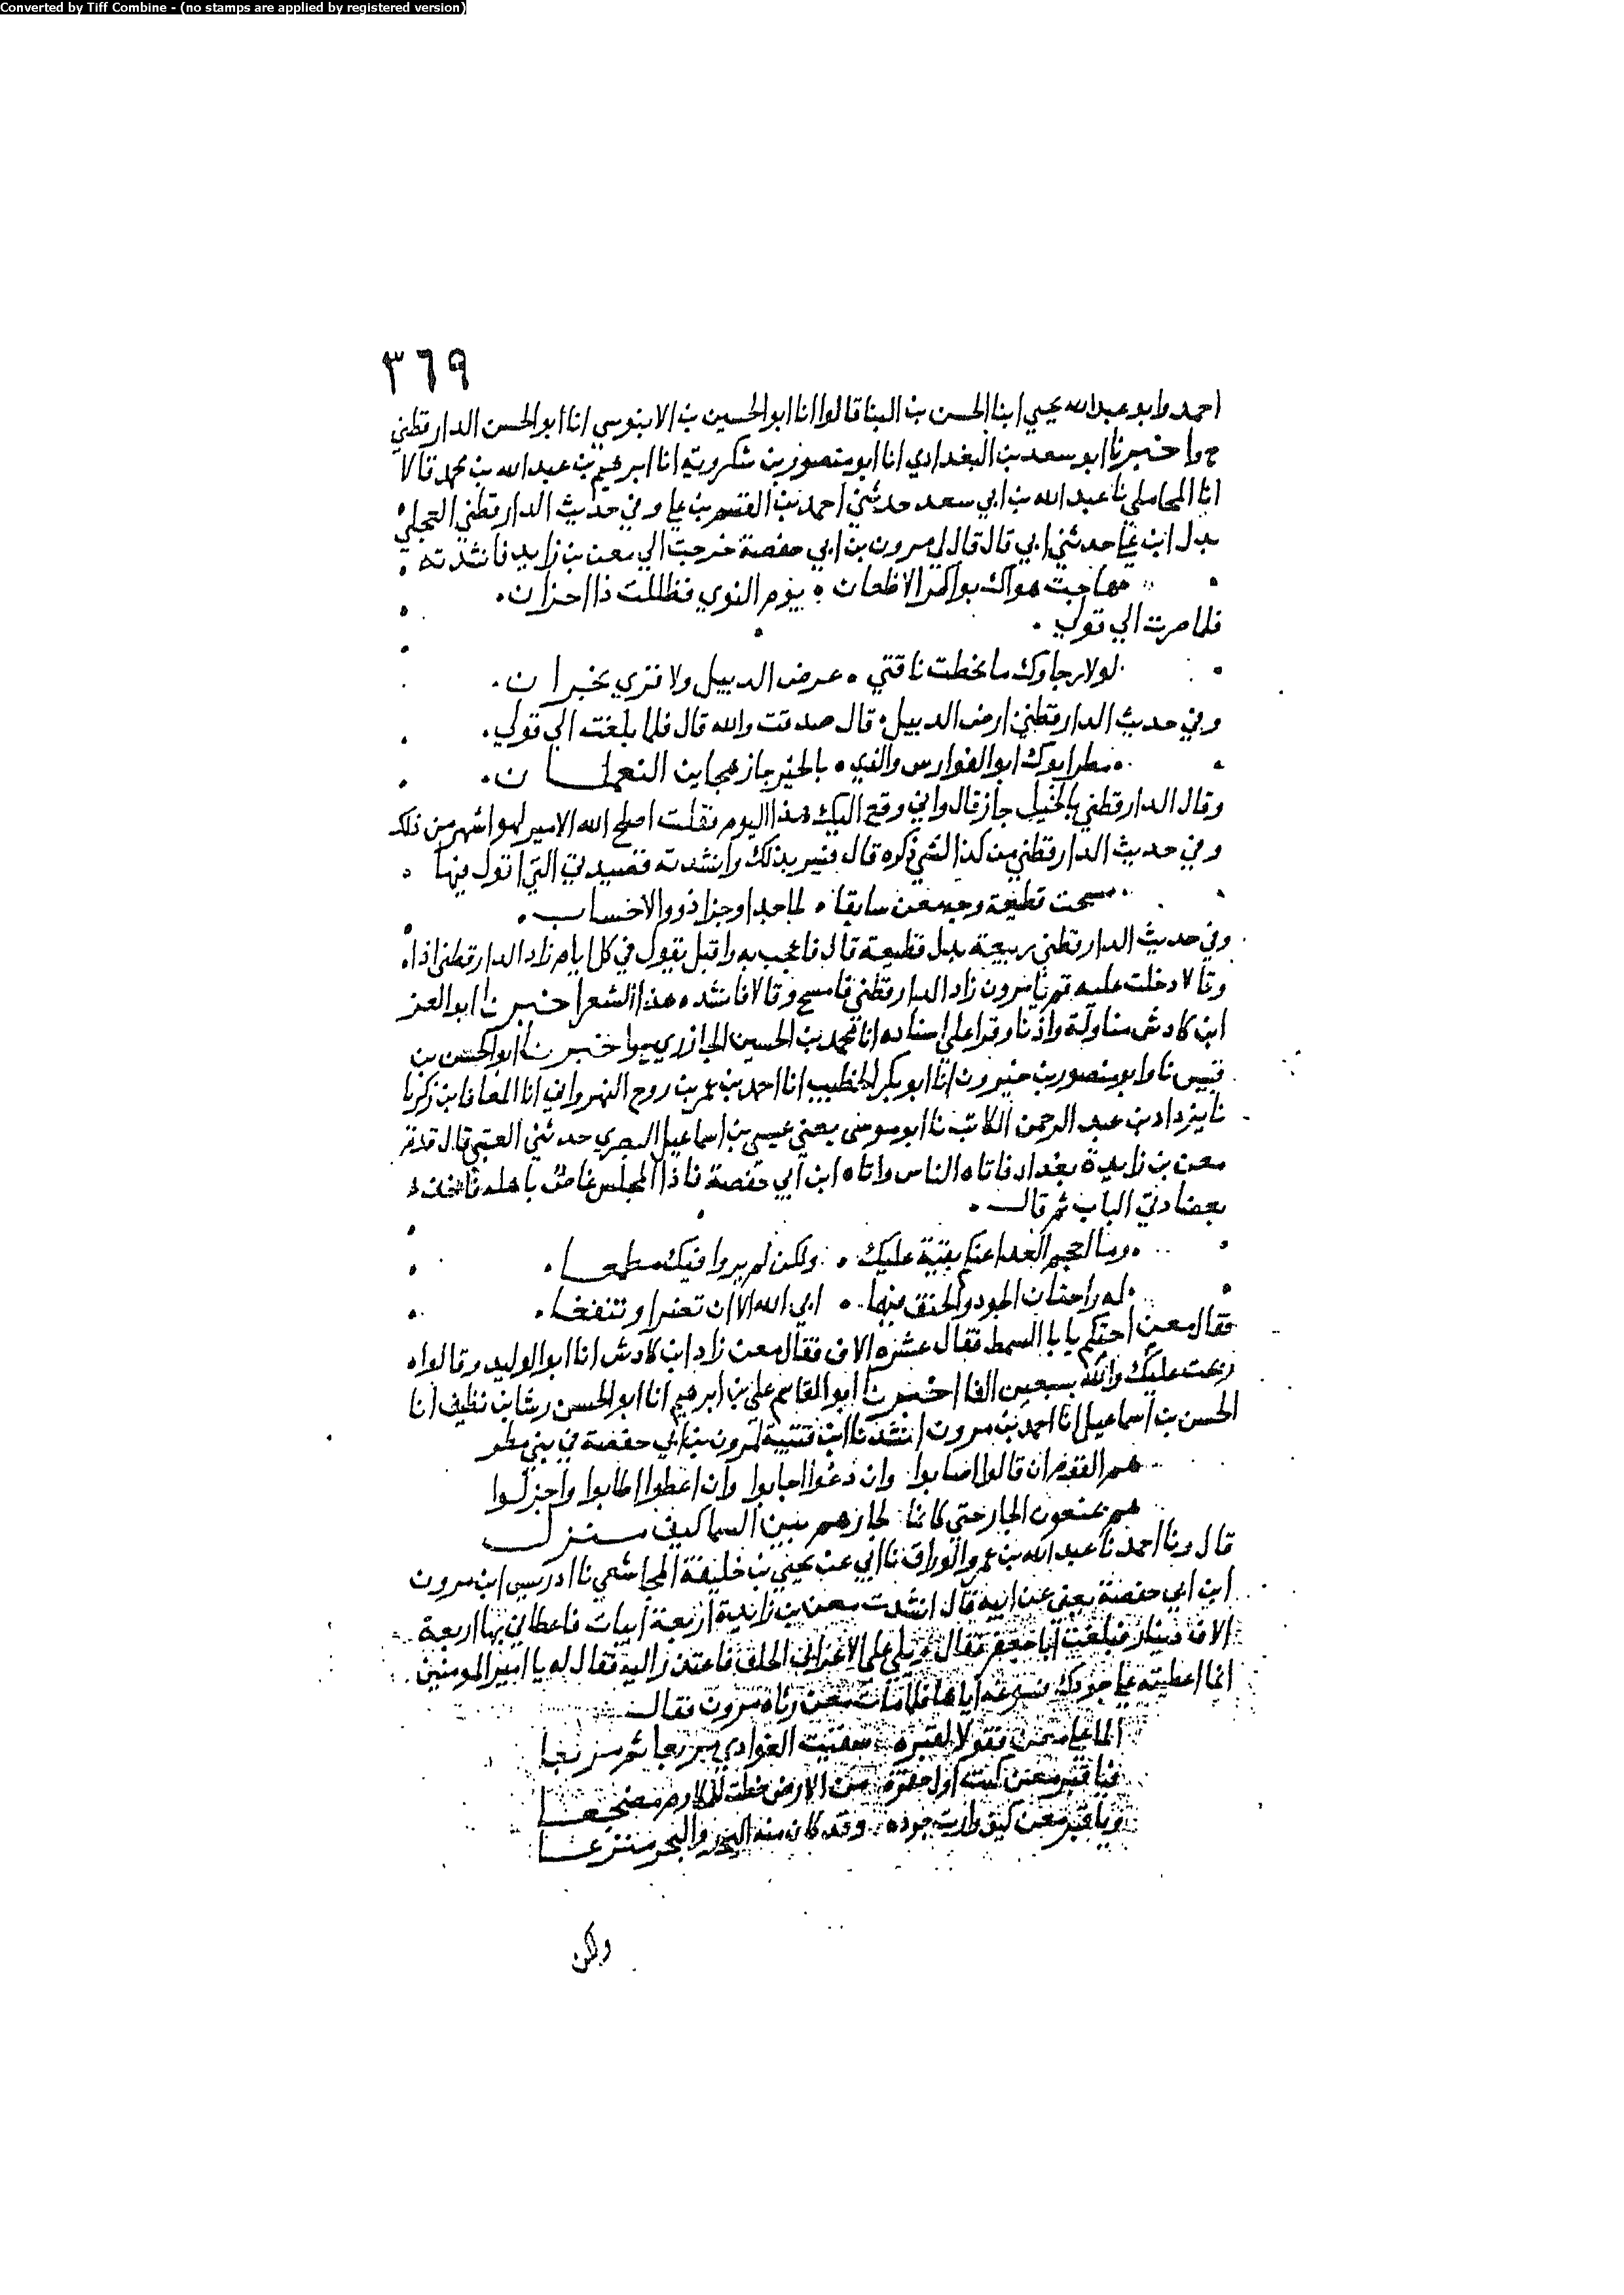 Converted by Tiff Combine - (no stamps are applied by registered version)
٣٦٩
احمد وابو عبد الله يحيي ابنا الحسن بن البنا قالوا انا ابو الحسين بن الابنوسي انا ابو الحسن الدارقطني
ح واخبرنا ابو سعد بن البغدادي انا ابو منصور بن شكرويه انا ابرهيم بن عبد الله بن محمد قالا
انا المحاملي نا عبد الله بن ابي سعد حدثني احمد بن القسم بن علي وفي حديث الدارقطني العجلي
بدل ابن علي حدثني ابي قال قال لي مرون بن ابي حفصة خرجت الي معن بن زايد فانشدته
هاجت هواك بواكر الاظعان يوم النوي فظللت ذا احزان
فلما صرت الي قولي
لولا رجاوك ما تخطت ناقتي عرض الدبيل ولا قري نجران
وفي حديث الدارقطني ارض الدبيل قال صدقت والله قال فلما بلغت الي قولي
مطر ابوك ابو الفوارس والذي بالخير جاز هجاين النعمان
وقال الدارقطني بالخيل جاز قال واني وقع اليك هذا اليوم فقلت اصلح الله الامير لهو اشهر من ذلك
وفي حديث الدارقطني من كذا لشي ذكره قال فسر بذلك وانشدته قصيدتي التي اقول فيها
مسحت قطيعة وجه معن سابقا لما جرا وجرا ذوو الاحساب
وفي حديث الدارقطني ربيعة بدل قطيعة قال فاعجب به واقبل يقول في كل ايام زاد الدارقطني اذا
وقالا دخلت عليه قم يا مرون زاد الدارقطني فامسح وقالا فانشده هذا الشعر اخبرنا ابو العز
ابن كادش مناولة واذنا وقرا علي اسناده انا محمد بن الحسين الجازري ح واخبرنا ابو الحسن بن
قبيس نا وابو منصور بن خيرون انا ابو بكر الخطيب انا احمد بن عمر بن روح النهرواني انا المعافا بن زكريا
نا يزداد بن عبد الرحمن الكاتب نا ابو موسي يعني عيسي بن اسماعيل البصري حدثني العتبي قال قدم
معن بن زايدة بغداد فاتاه الناس واتاه ابن ابي حفصة فاذا المجلس غاص باهله فاخذ
بعضادتي الباب ثم قال
وما احجم الاعدا عنك بقية عليك ولكن لم يروا فيك مطمعا
له راحتان الجود والحتف فيهما ابي الله الا ان تضرا وتنفعا
فقال معن احتكم يا با السمط فقال عشره الاف فقال معن زاد ابن كادش انا ابو الوليد وقالوا
ربحت عليك والله بسبعين الفا اخبرنا ابو القاسم علي بن ابرهيم انا ابو الحسن رشا بن نظيف انا
الحسن بن اسماعيل انا احمد بن مرون انشدنا ابن قتيبة لمرون بن ابي حفصة في بني مطر
هم القوم ان قالوا اصابوا وان دعوا اجابوا وان اعطوا اطابوا واجزلوا
هم يمنعون الجار حتي كانما لجارهم بين السماكين منزل
قال ونا احمد نا عبد الله بن عمرو الوراق نا ابي عن يحيي بن خليفة المجاشعي نا ادريس ابن مرون
ابن ابي حفصة يعني عن ابيه قال انشدت معن بن زايدة اربعة ابيات فاعطاني بها اربعة
الاف دينار فبلغت ابا جعفر فقال ويلي علي الاعرابي الجلف فاعتذر اليه فقال له يا امير المومنين
انما اعطيته علي جودك فسوغه اياها فلما مات معن رثاه مرون فقال
الما علي معن فقولا لقبره سقيت الغوادي مربعا ثم مربعا
فيا قبر معن كنت اول حفرة من الارض خطت للمكارم مضجعا
ويا قبر معن كيف واريت جوده وقد كان منه البر والبحر مترعا
ولكن